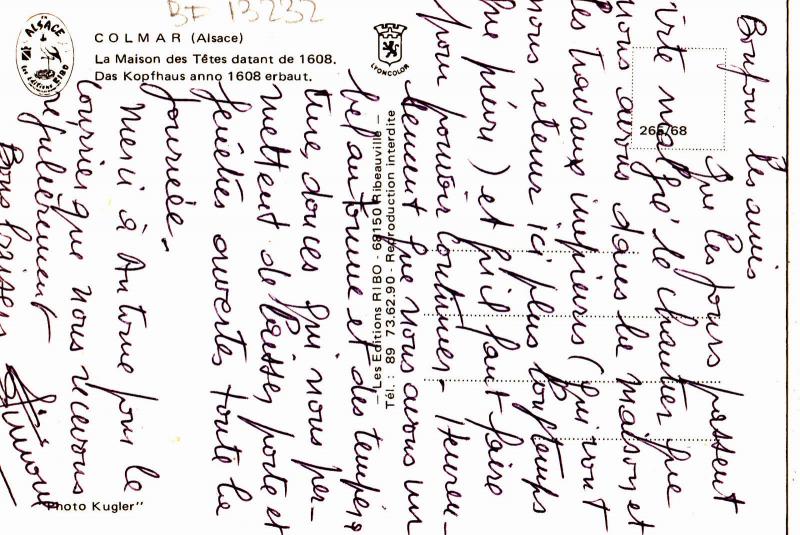 BF 13232
ALSACE
les éditions RIBO
COLMAR (Alsace)
La Maison des Têtes datant de 1608.
Das Kopfhaus anno 1608 erbaut.
LYONCOLOR
265/68
Les Editions RIBO - 68150 Ribeauvillé -
Tél.: 89 73.62.90 - Reproduction interdite
Photo Kugler"
Bonjour les amis
Que les jours passent
vite malgré le chantier que
nous avons dans la maison et
les travaux imprévus (qui vont
nous retenir ici plus longtemps
que prévu) et qu'il faut faire
pour pouvoir continuer. Heureu-
sement que nous avons un
bel automne et des tempéra
ture, douces qui nous per-
mettent de laisser porte et
fenêtres ouvertes toute la
journée.
Merci à Antoine pour le
courrier que nous recevons
régulièrement
Bons baisers
Simone